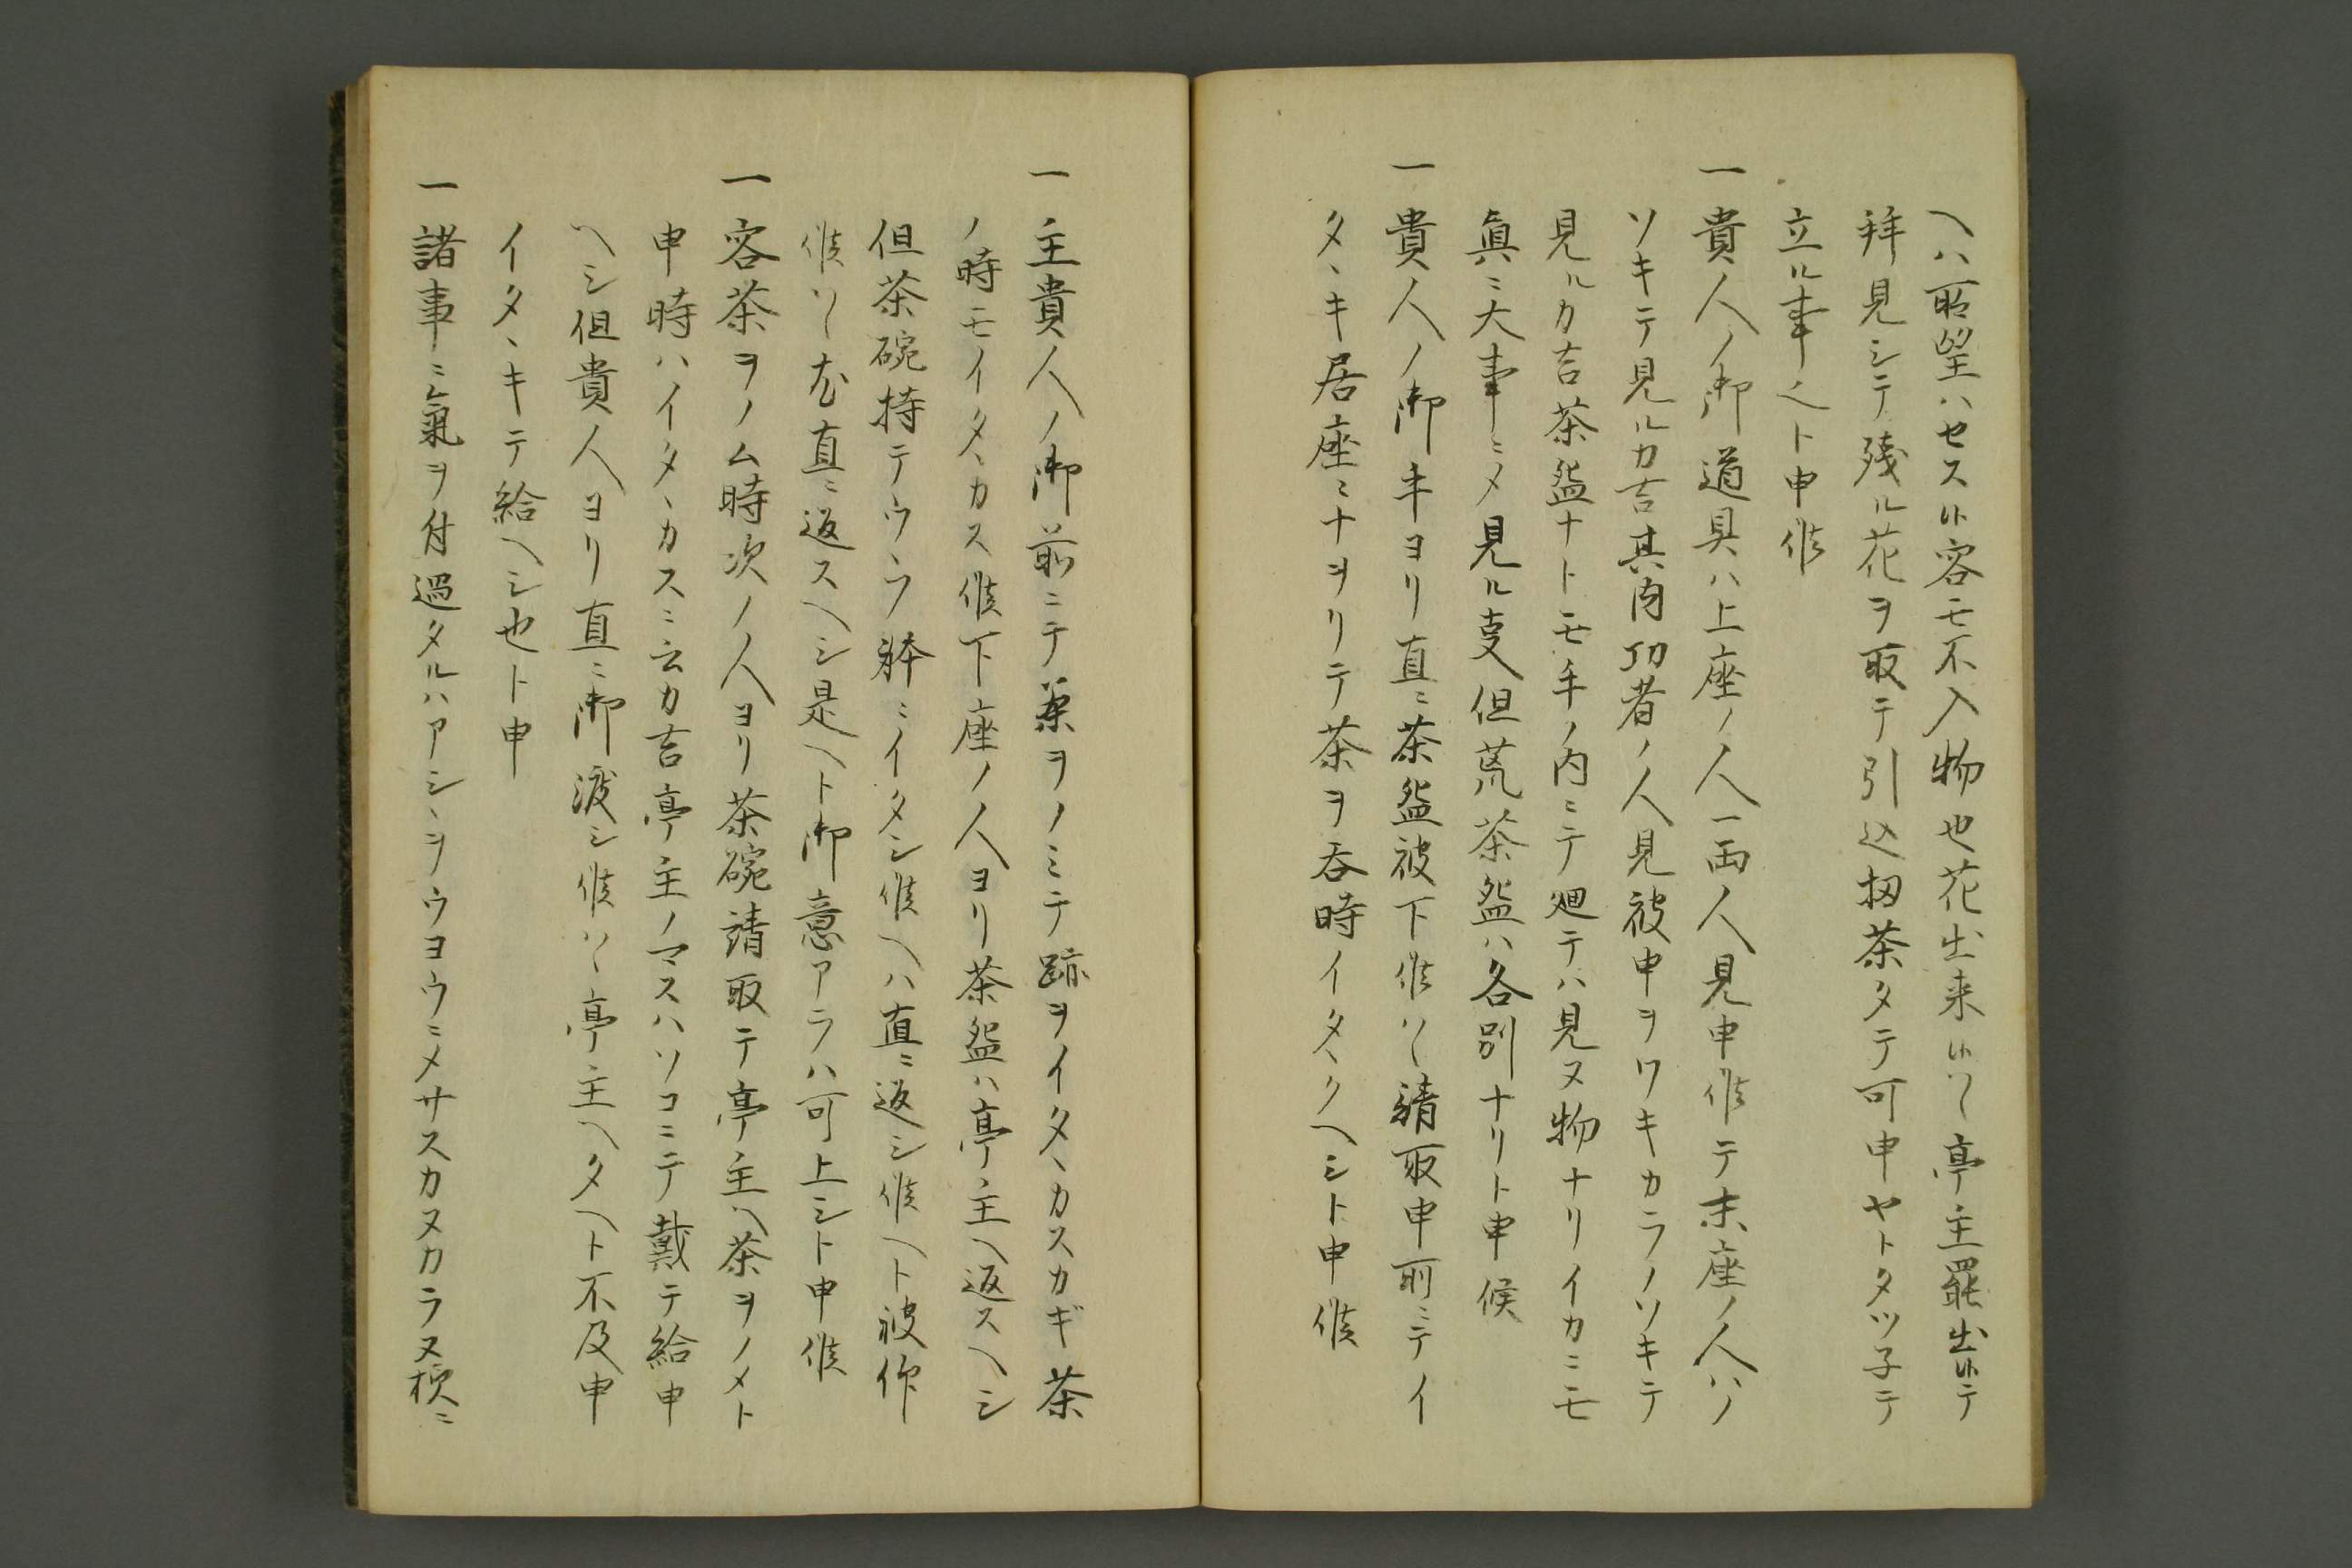 ヘハ所望ハセス候客モ不入物也花出来候ハヽ亭主罷出候テ
拝見シテ残ル花ヲ取テ引込扨茶タテ可申ヤトタツ子テ
立ル事之ト申候
一貴人ノ御道具ハ上座ノ人一両人見申候テ末座ノ人ハノ
ソキテ見ルカ吉其内功者ノ人見被申ヲワキカラノソキテ
見ルカ吉茶盌ナトモ手ノ内ニテ廻テハ見ヌ物ナリイカニモ
真ニ大事ニメ見ル支但荒茶盌ハ各別ナリト申候
一貴人ノ御手ヨリ直ニ茶盌被下候ハヽ請取申前ニテイ
タヽキ居座ニナヲリテ茶ヲ呑時イタヽクヘシト申候
一主貴人ノ御前ニテ菓ヲノミテ跡ヲイタヽカスカギ茶
ノ時モイタヽカス候下座ノ人ヨリ茶盌ハ亭主ヘ返スヘシ
但茶碗持テウラ躰ニイタシ候ヘハ直ニ返シ候ヘト被仰
候ハヽ尤直ニ返スヘシ是ヘト御意アラハ可上シト申候
一客茶ヲノム時次ノ人ヨリ茶碗請取テ亭主ヘ茶ヲノメト
申時ハイタヽカスニ云カ吉亭主ノマスハソコニテ戴テ給申
ヘシ但貴人ヨリ直ニ御渡シ候ハヽ亭主ヘタヘト不及申
イタヽキテ給ヘシ也ト申
一諸事ニ氣ヲ付過タルハアシヽヲウヨウニメサスカヌカラヌ様ニ